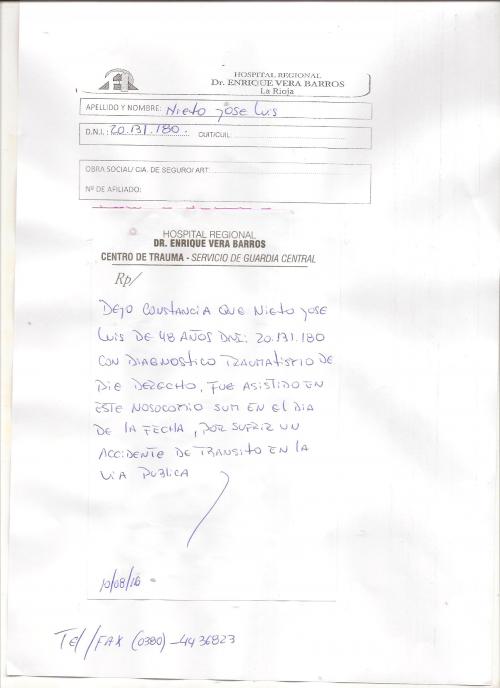 HOSPITAL REGIONAL
Dr. ENRIQUE VERA BARROS
La Rioja
APELLIDO Y NOMBRE: Nieto José Luis
D.N.I.: 20.131.180. CUIT/CUIL:
OBRA SOCIAL/ CIA. DE SEGURO/ ART:
Nº DE AFILIADO:
HOSPITAL REGIONAL
DR. ENRIQUE VERA BARROS
CENTRO DE TRAUMA - SERVICIO DE GUARDIA CENTRAL
Rp/
DEJO CONSTANCIA QUE NIETO JOSE
LUIS DE 48 AÑOS DNI: 20.131.180
CON DIAGNOSTICO TRAUMATISMO DE
PIE DERECHO, FUE ASISTIDO EN
ESTE NOSOCOMIO SUM EN EL DIA
DE LA FECHA, POR SUFRIR UN
ACCIDENTE DE TRANSITO EN LA
VIA PUBLICA
10/08/16
Tel/FAX (0380)-4436823